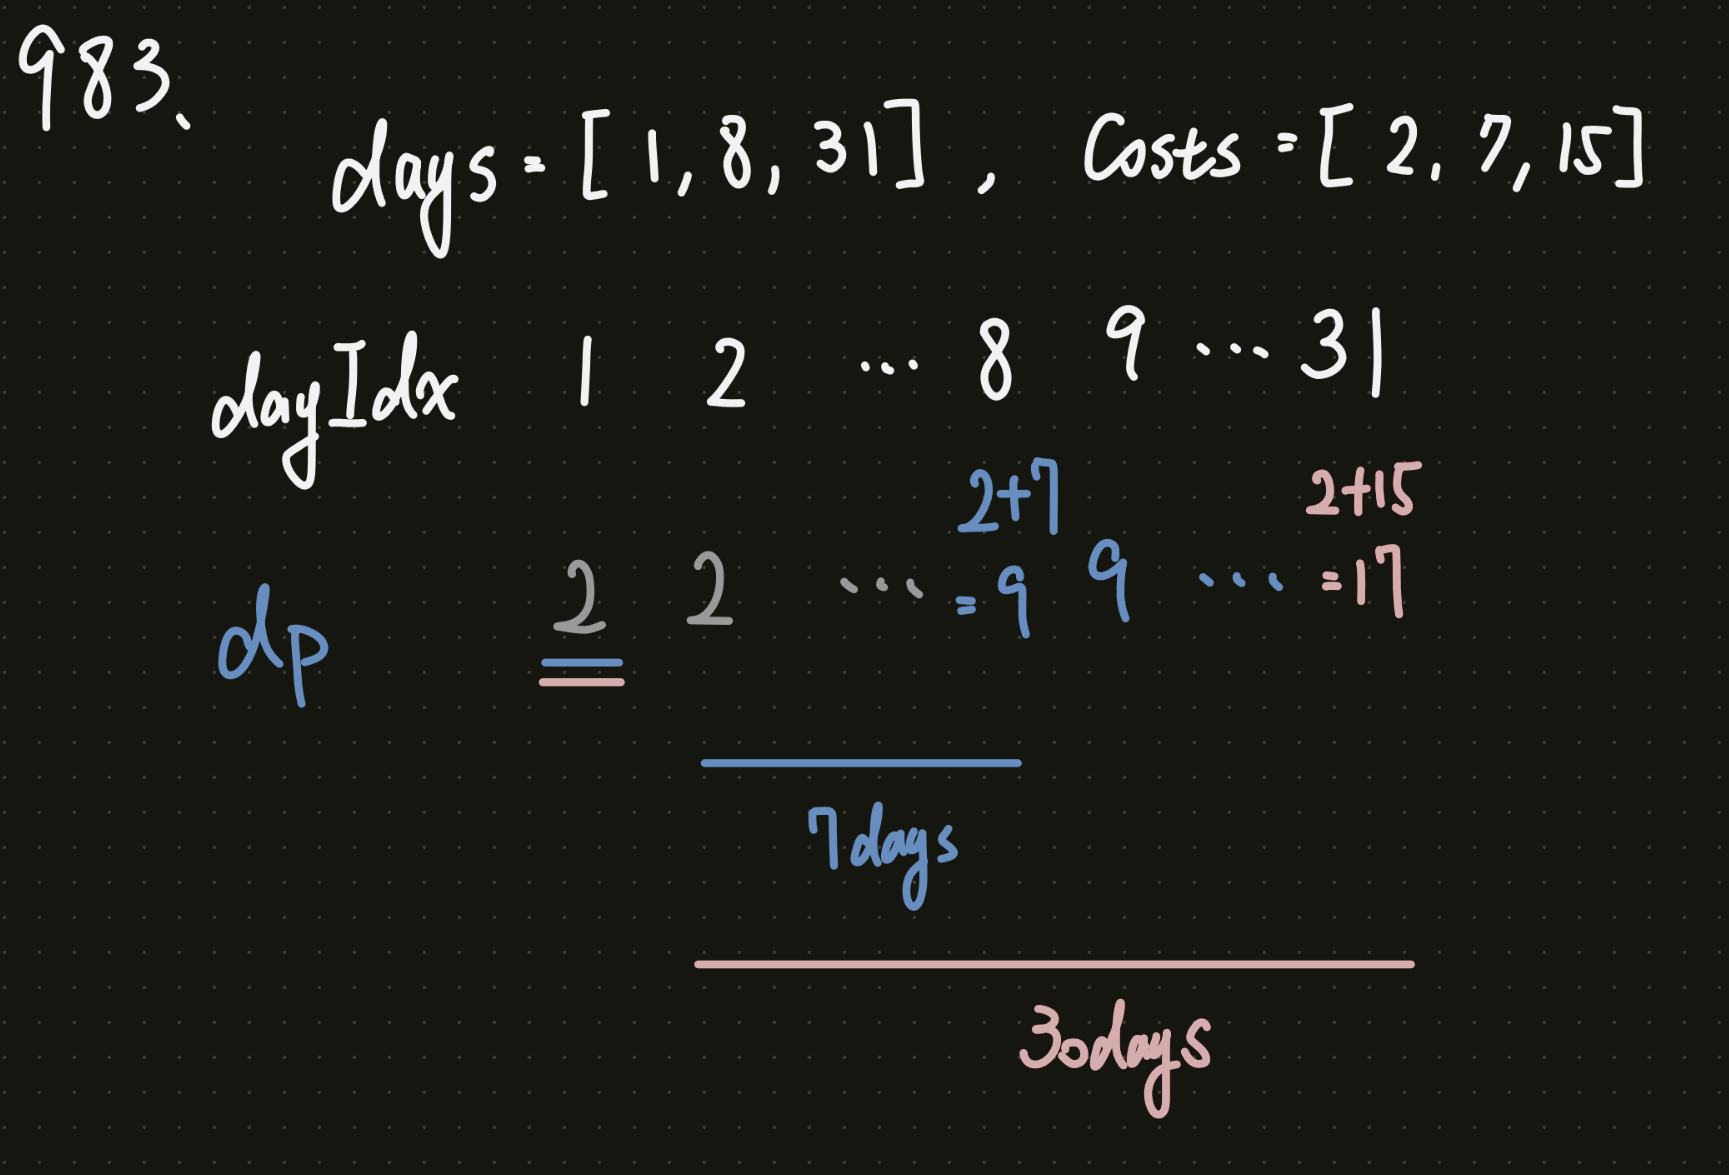 983、
days = [1, 8, 31], Costs = [2, 7, 15]
dayIdx 1 2 ... 8 9 ... 31
2+7 2+15
dp 2 2 ... = 9 9 ... = 17
7days
30days